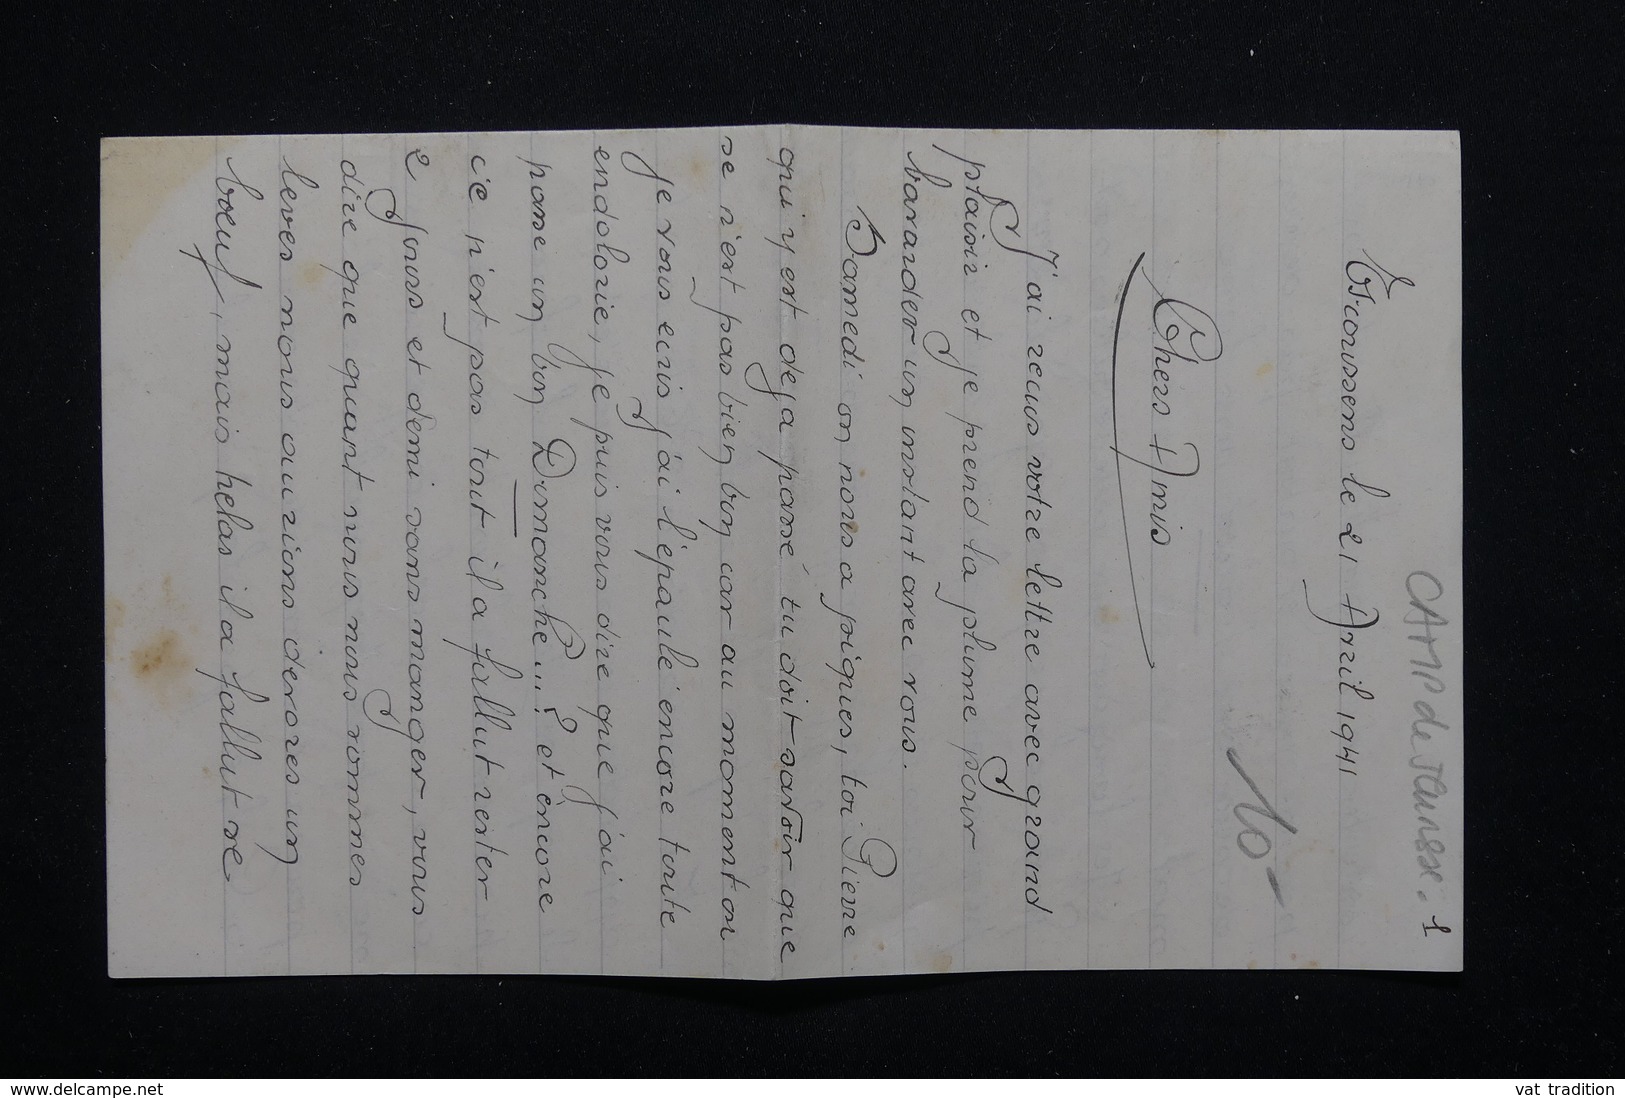 CAMP de Jeunesse. 1
Escoussens le 21 Avril 1941
10-
Chèrs Amis
J'ai recus votre lettre avec grand
plaisir et je prend la plume pour
bavarder un instant avec vous.
Samedi on nous a piques, toi Pierre
qui y est deja passé, tu doit savoir que
se n'est pas bien bon car au moment on
je vous ecris j'ai l'épaule encore toute
endolorie, je puis vous dire que j'ai
passe un bon Dimanche...? et encore
ce n'est pas tout il a fallut rester
2 jours et demi sans manger, vous
dire que quant nous nous sommes
leves nous aurions devores un
boeuf, mais helas il a fallut se
www.delcampe.net
vat tradition